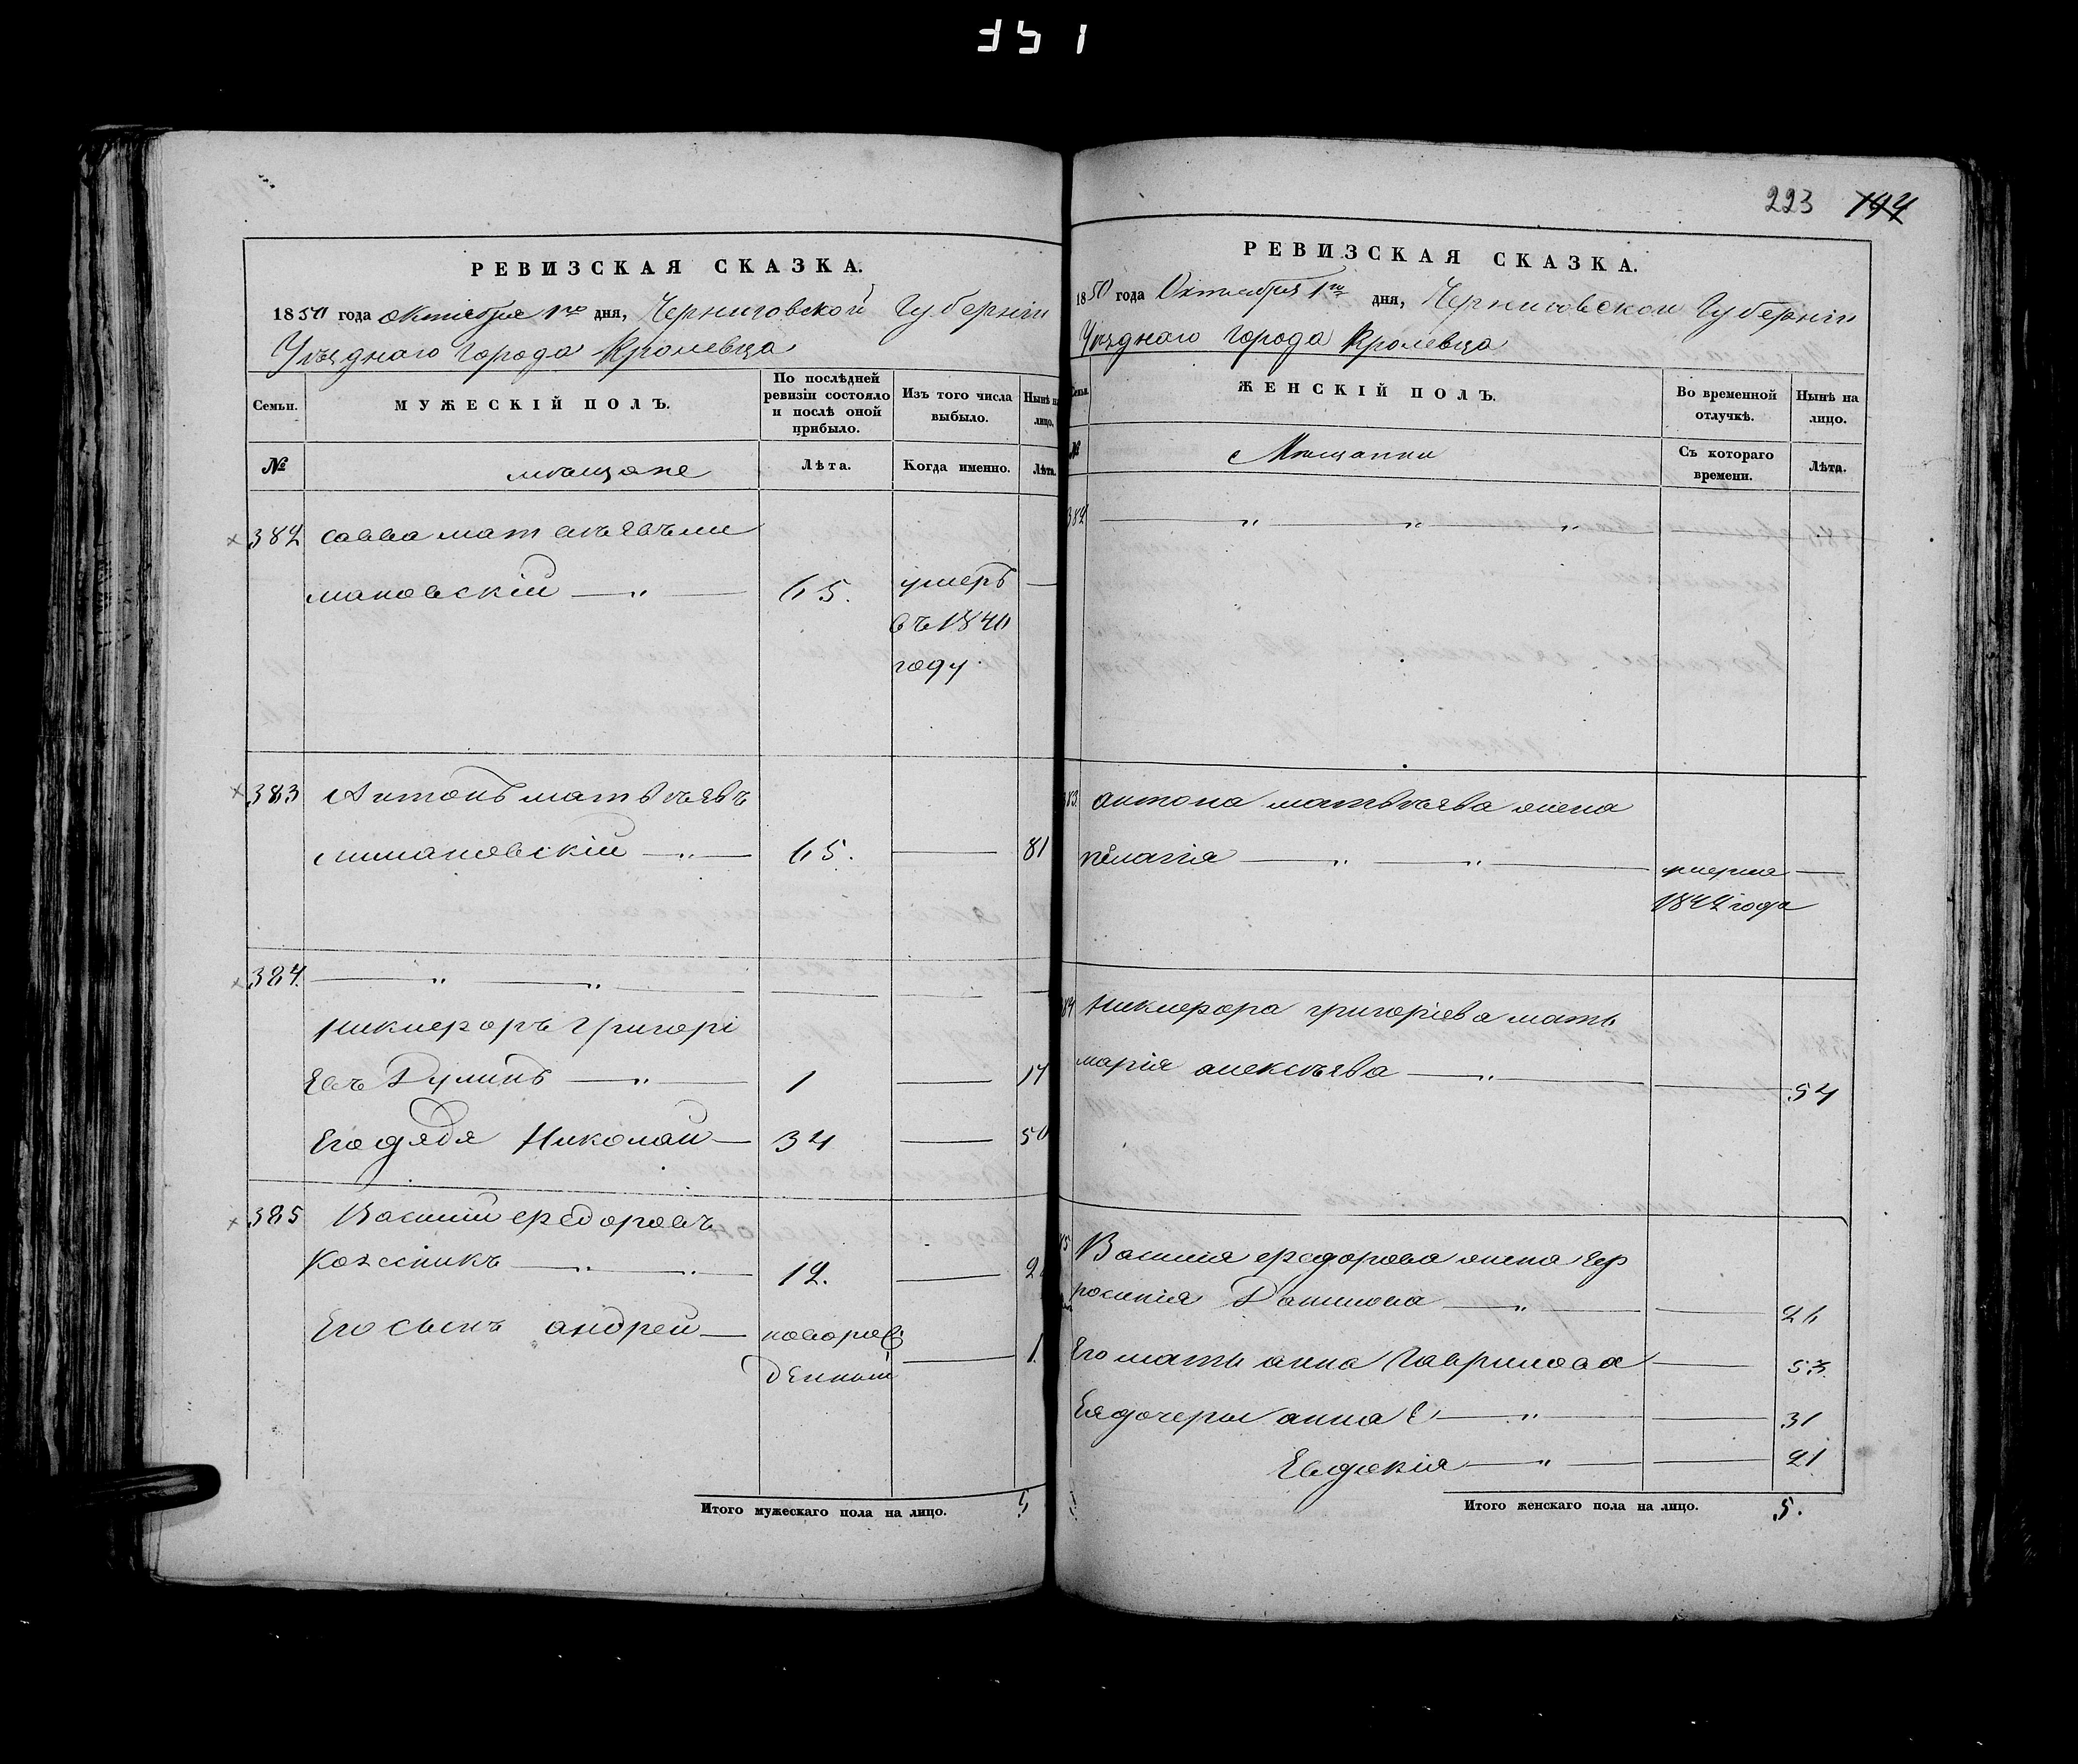 351
РЕВИЗСКАЯ СКАЗКА.
1850 года октября 1го дня, Черниговской Губерніи
Уѣзднаго города Кролевца
Семьи.
МУЖЕСКІЙ ПОЛЪ.
По послѣдней ревизіи состояло и послѣ оной прибыло.
Изъ того числа выбыло.
Нынѣ на лицо.
№
мѣщане
Лѣта.
Когда именно.
Лѣта.
382 савва матвѣевъ ли
мановскій 65. умеръ
въ 1840
году.
383 Антонъ матвѣевъ
лимановскій 65. 81
384.
никифоръ григорі
евъ 1 17
Его дядя Николай 34 50
385 Василій федоровъ
12. 2
Его сынъ андрей новорож
денный 1.
Итого мужескаго пола на лицо. 5
223 194
РЕВИЗСКАЯ СКАЗКА.
1850 года Октября 1го дня, Черниговской Губерніи
Уѣзднаго города Кролевца
Семьи.
ЖЕНСКІЙ ПОЛЪ.
Во временной отлучкѣ.
Нынѣ на лицо.
№
Мѣщанки
Съ котораго времени.
Лѣта.
382
383. антона матвѣева жена
пелагія умерла
1842 года
384 Никифора григоріева мать
марія алексѣева 54
385 Василія федорова жена Еф
росинія Данилова 26
Его мать анна Гаврилова 53.
Ея дочери анна 31
Евдокія 21
Итого женскаго пола на лицо. 5.